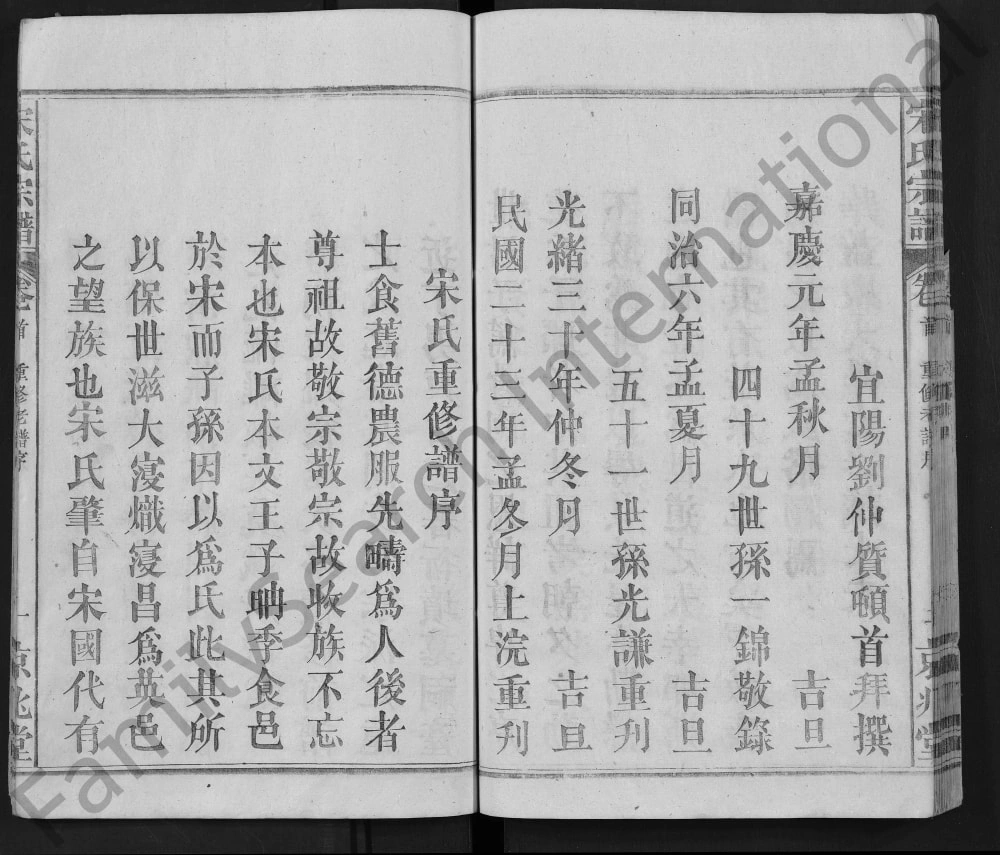 宋氏宗譜
卷首
宜陽劉仲質頓首拜撰
嘉慶元年孟秋月 吉旦
四十九世孫一錦敬錄
同治六年孟夏月 吉旦
五十一世孫光謙重刋
光緒三十年仲冬月 吉旦
民國二十三年孟冬月上浣重刋
宋氏重修譜序
士食舊德農服先疇爲人後者
尊祖故敬宗敬宗故收族不忘
本也宋氏本文王子聃季食邑
於宋而子孫因以爲氏此其所
以保世滋大寖熾寖昌爲英邑
之望族也宋氏肇自宋國代有
宋氏宗譜
卷首 重修老譜序 一 京兆堂
FamilySearch International